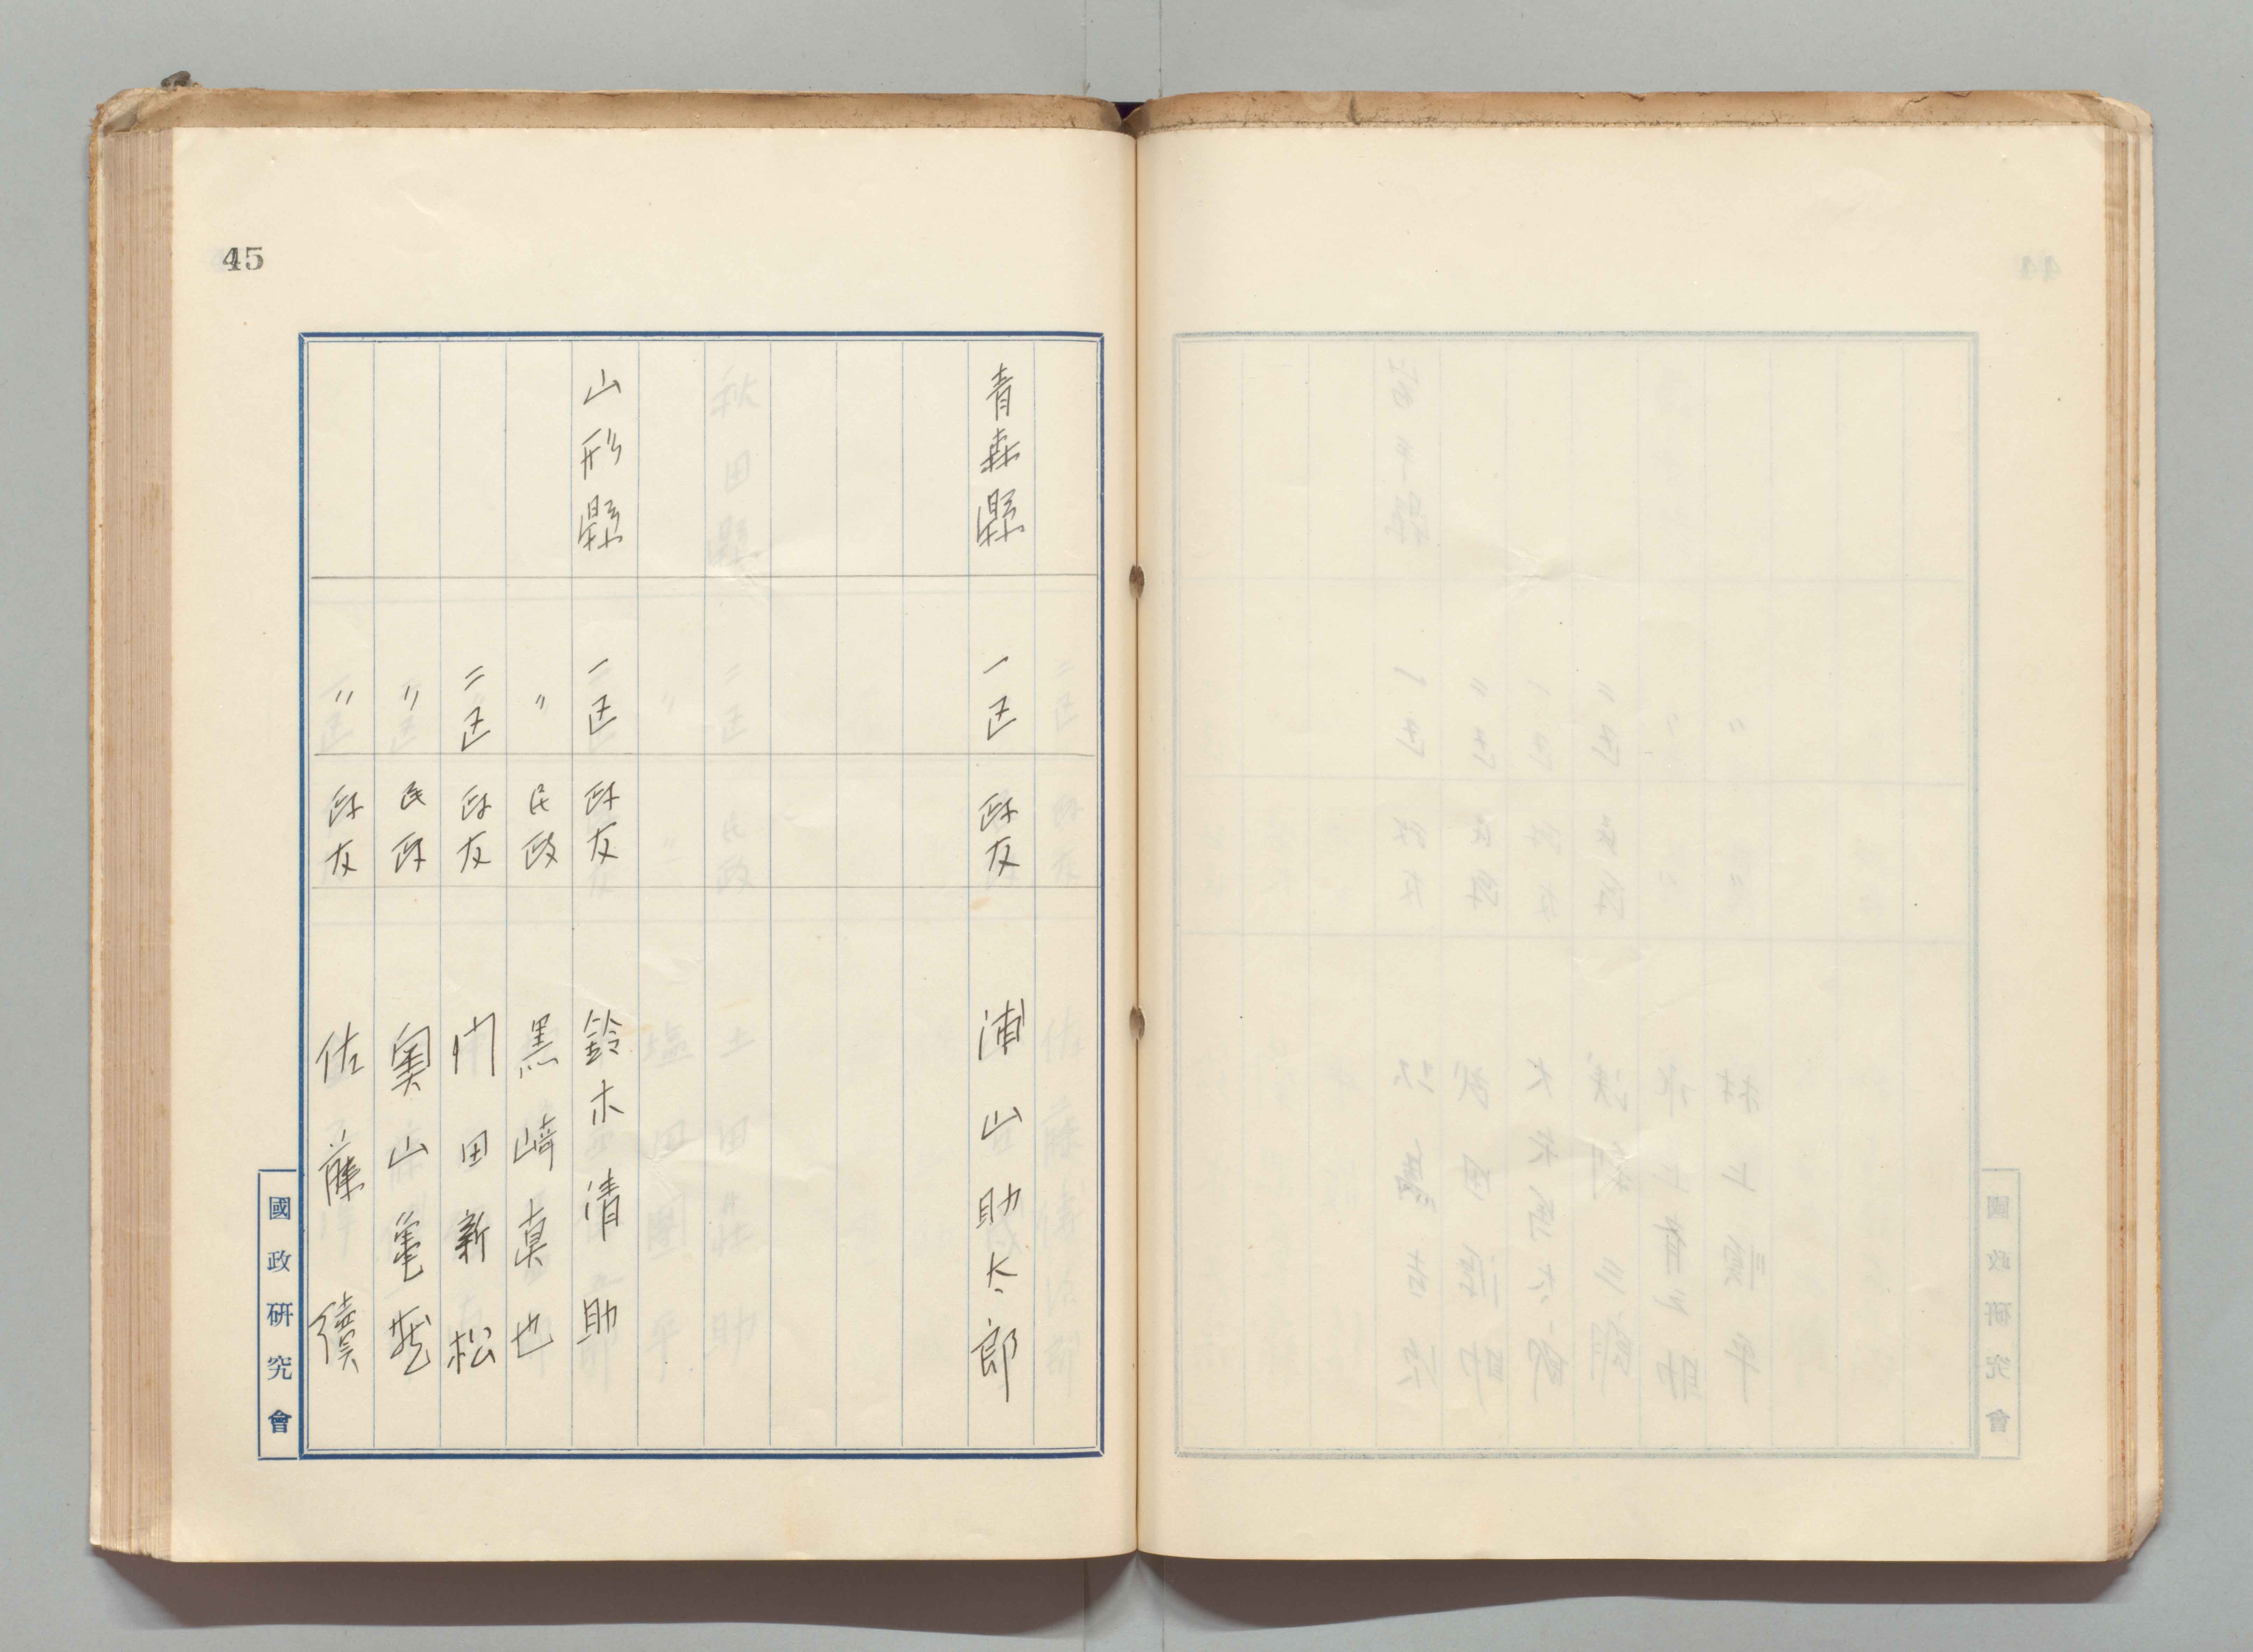 45
青森縣 一区 政友 浦山助太郎
山形縣 一区 政友 鈴木清助
〃 民政 黒崎真也
二区 政友 門田新松
〃 民政 奥山亀蔵
〃 政友 佐藤
國政研究會